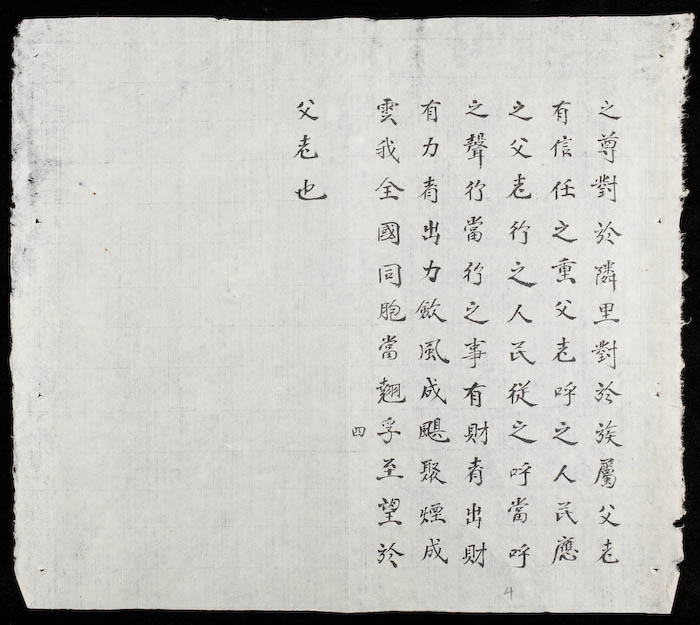 之尊對於隣里對於族屬父老
有信任之重父老呼之人民應
之父老行之人民從之呼當呼
之聲行當行之事有財者出財
有力者出力歛風成颶聚煙成
雲我全國同胞當翹孚至望於
父老也
四
4